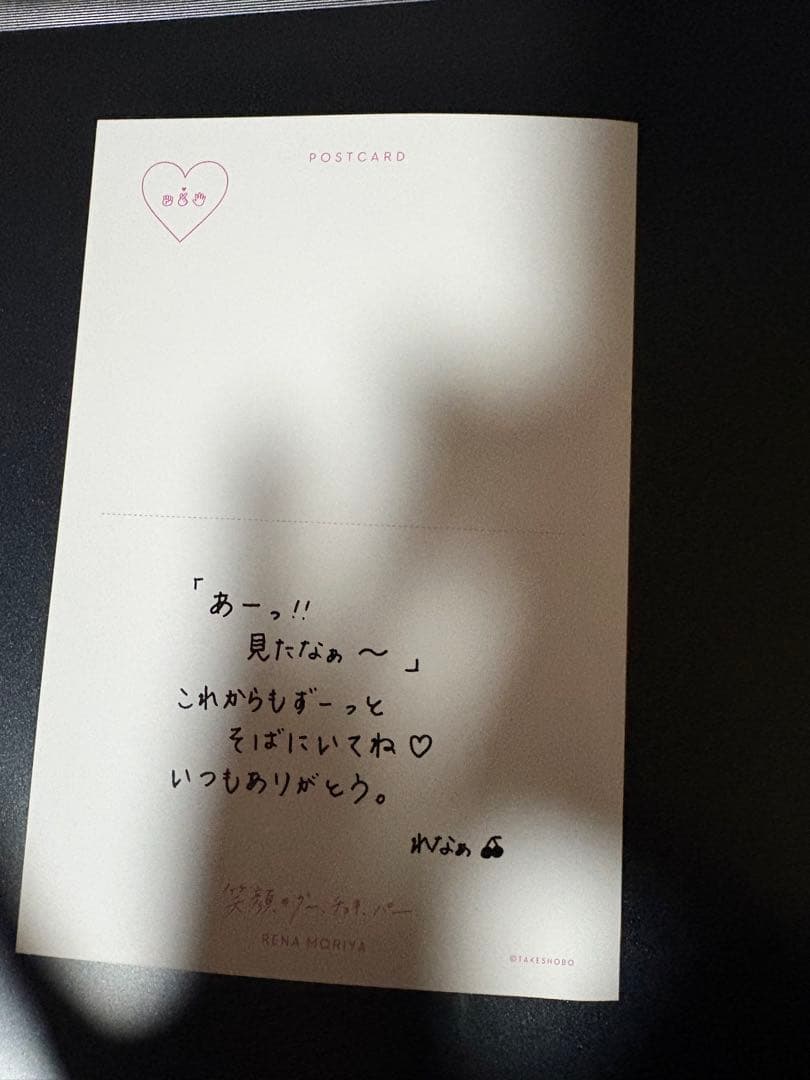 POSTCARD
「あーっ!!
見たなぁ〜」
これからもずーっと
そばにいてね♡
いつもありがとう。
れなぁ🍒
笑顔のグー、チョキ、パー
RENA MORIYA
©TAKESHOBO